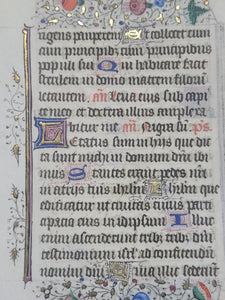 rigens pauperem Ut collocet eum
cum principibus cum principibus
populi sui Qui habitare facit
sterilem in domo matrem filiorū
letantem añ Leua eius sub capi
te meo et dextra illius amplexa
bitur me añ Nigra sū ps
Letatus sum in hijs que dic
ta sunt michi in domum dnī ibi
mus Stantes erant pedes nrī
in atrijs tuis ihrlm Ihrlm
que edificatur ut ciuitas cuius parti
cipatio eius in idipsum Illuc
enim ascenderunt tribꝫ tribꝫ dnī
testimonium isrl ad confitendū
nomini dnī Quia illic sederūt